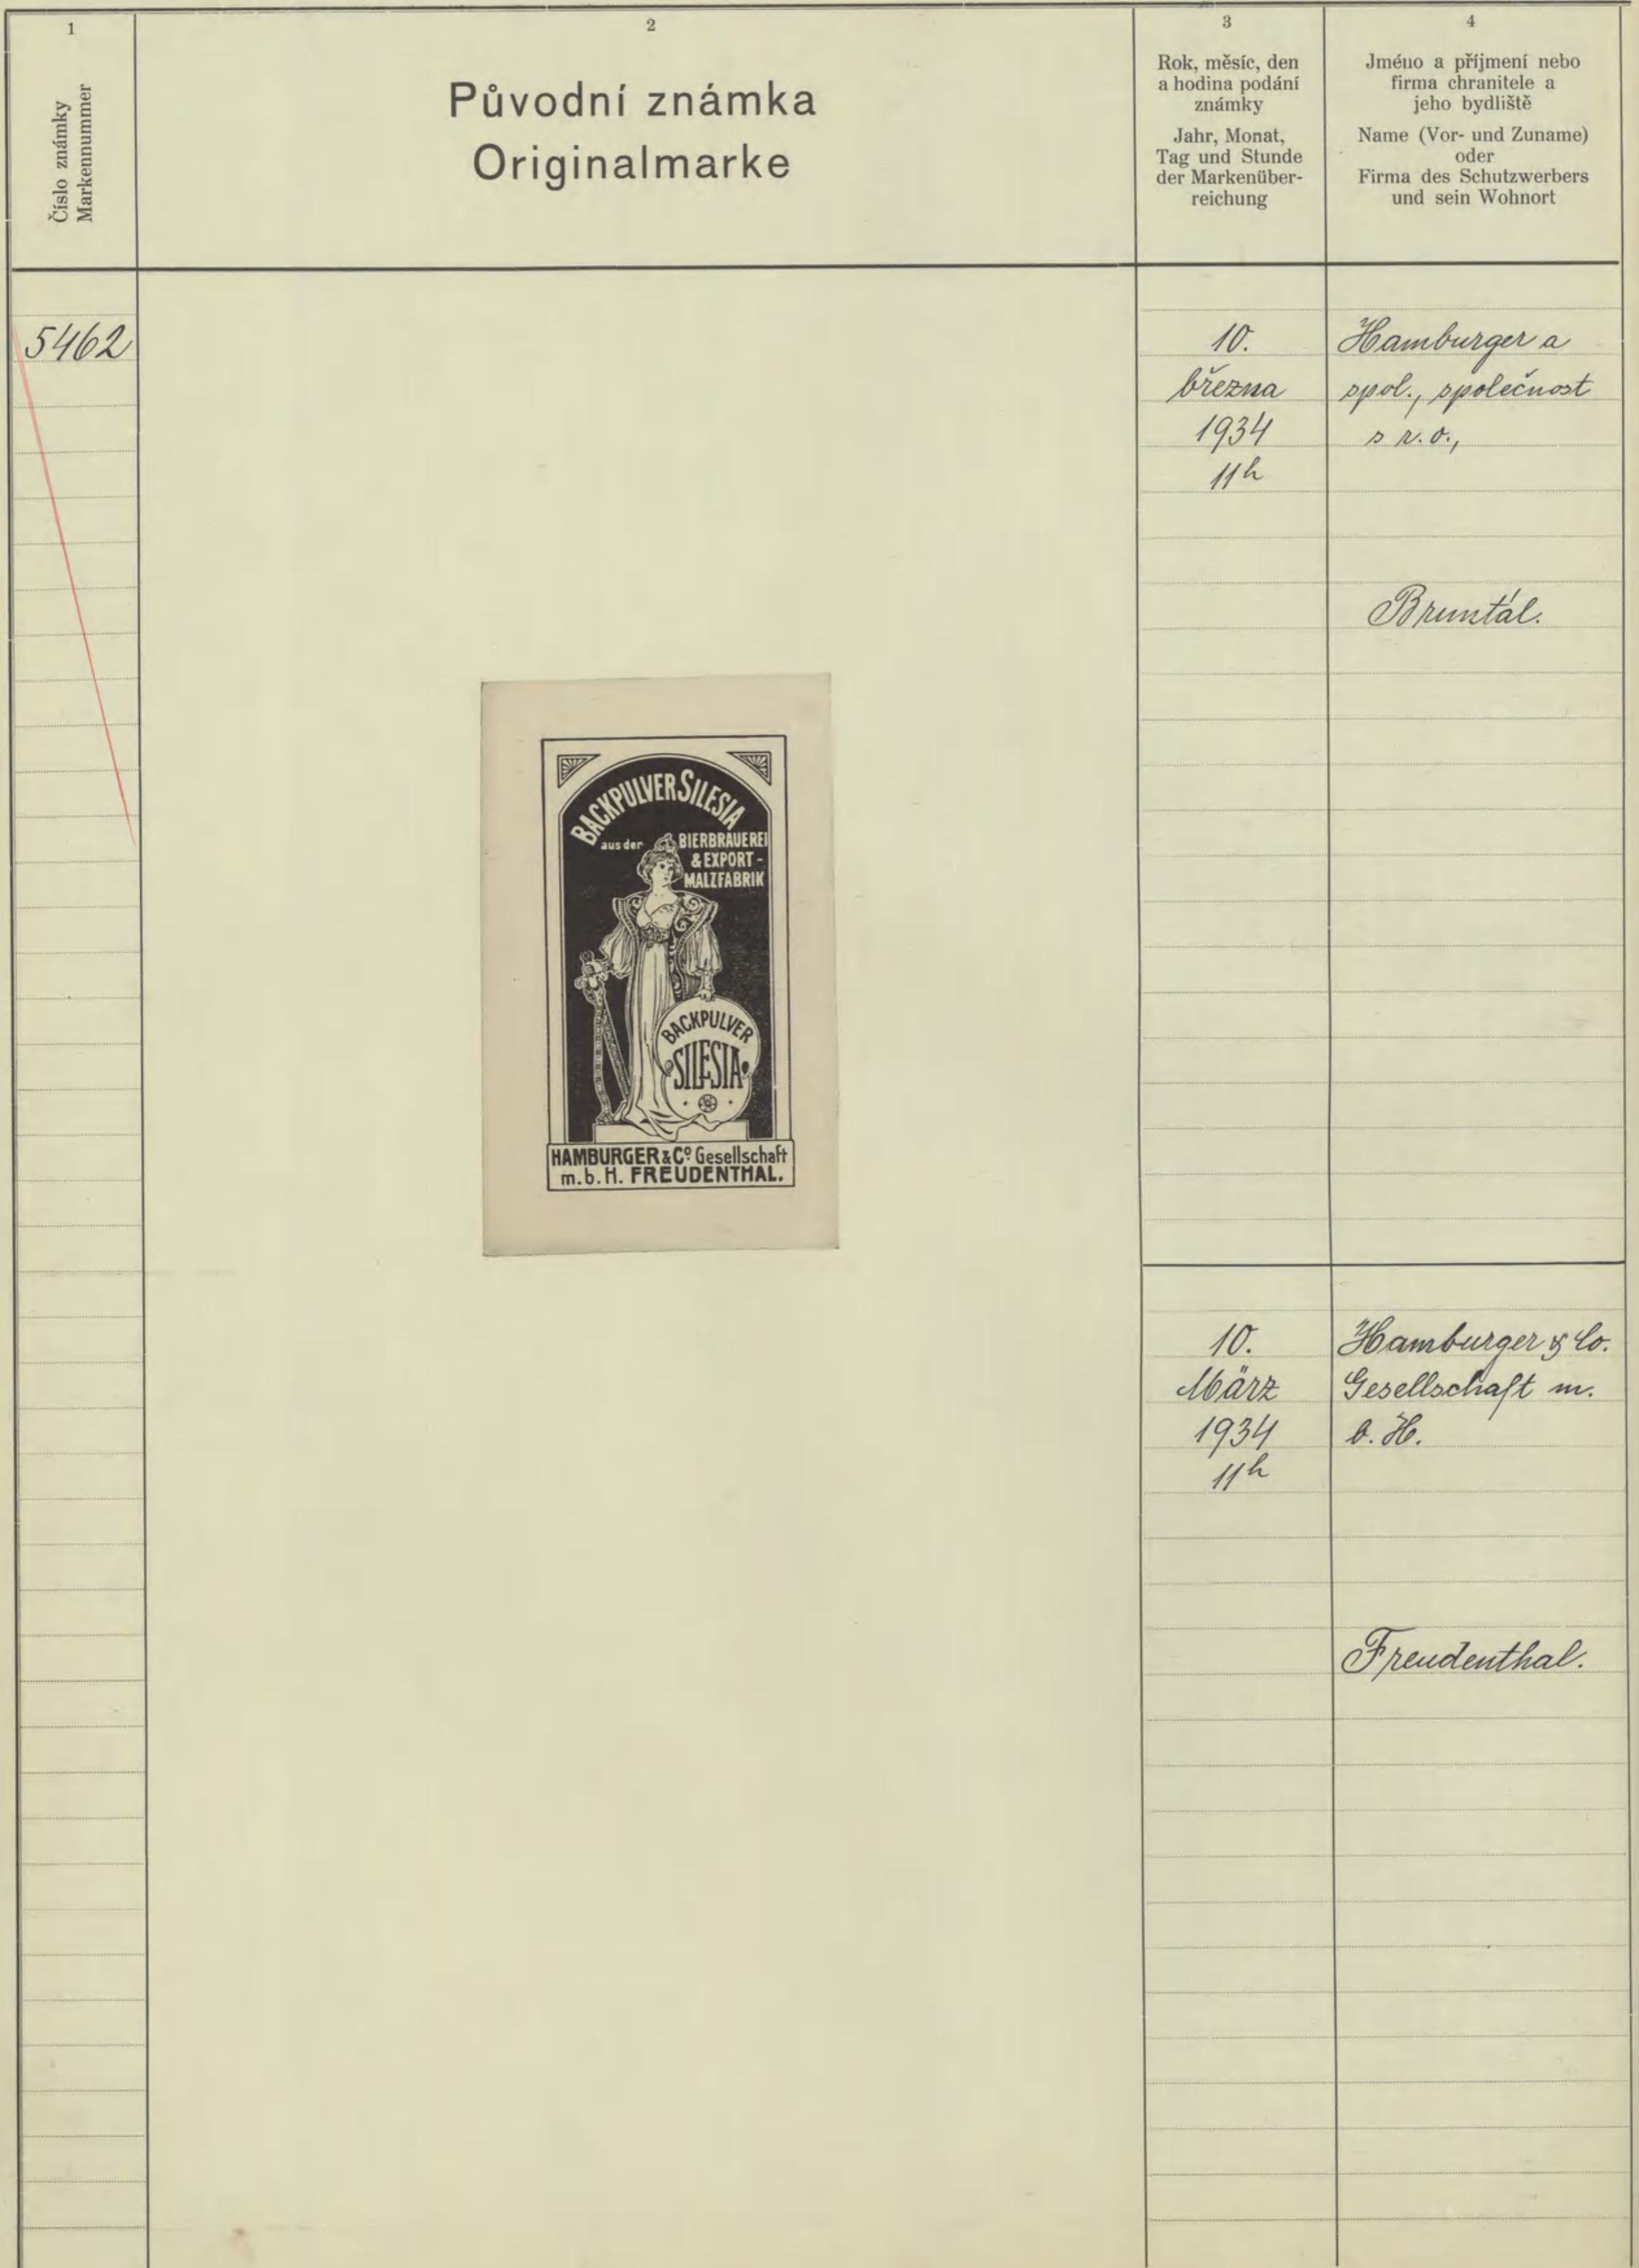 1
Číslo známky
Markennummer
2
Původní známka
Originalmarke
3
Rok, měsíc, den
a hodina podání
známky
Jahr, Monat,
Tag und Stunde
der Markenüber-
reichung
4
Jméno a příjmení nebo
firma chranitele a
jeho bydliště
Name (Vor- und Zuname)
oder
Firma des Schutzwerbers
und sein Wohnort
5462
BACKPULVER SILESIA
aus der BIERBRAUEREI
& EXPORT-
MALZFABRIK
BACKPULVER
SILESIA
HAMBURGER & Co. Gesellschaft
m.b.H. FREUDENTHAL.
10.
března
1934
11h
Hamburger a
spol., společnost
s r.o.,
Bruntál.
10.
März
1934
11h
Hamburger & Co.
Gesellschaft m.
b. H.
Freudenthal.